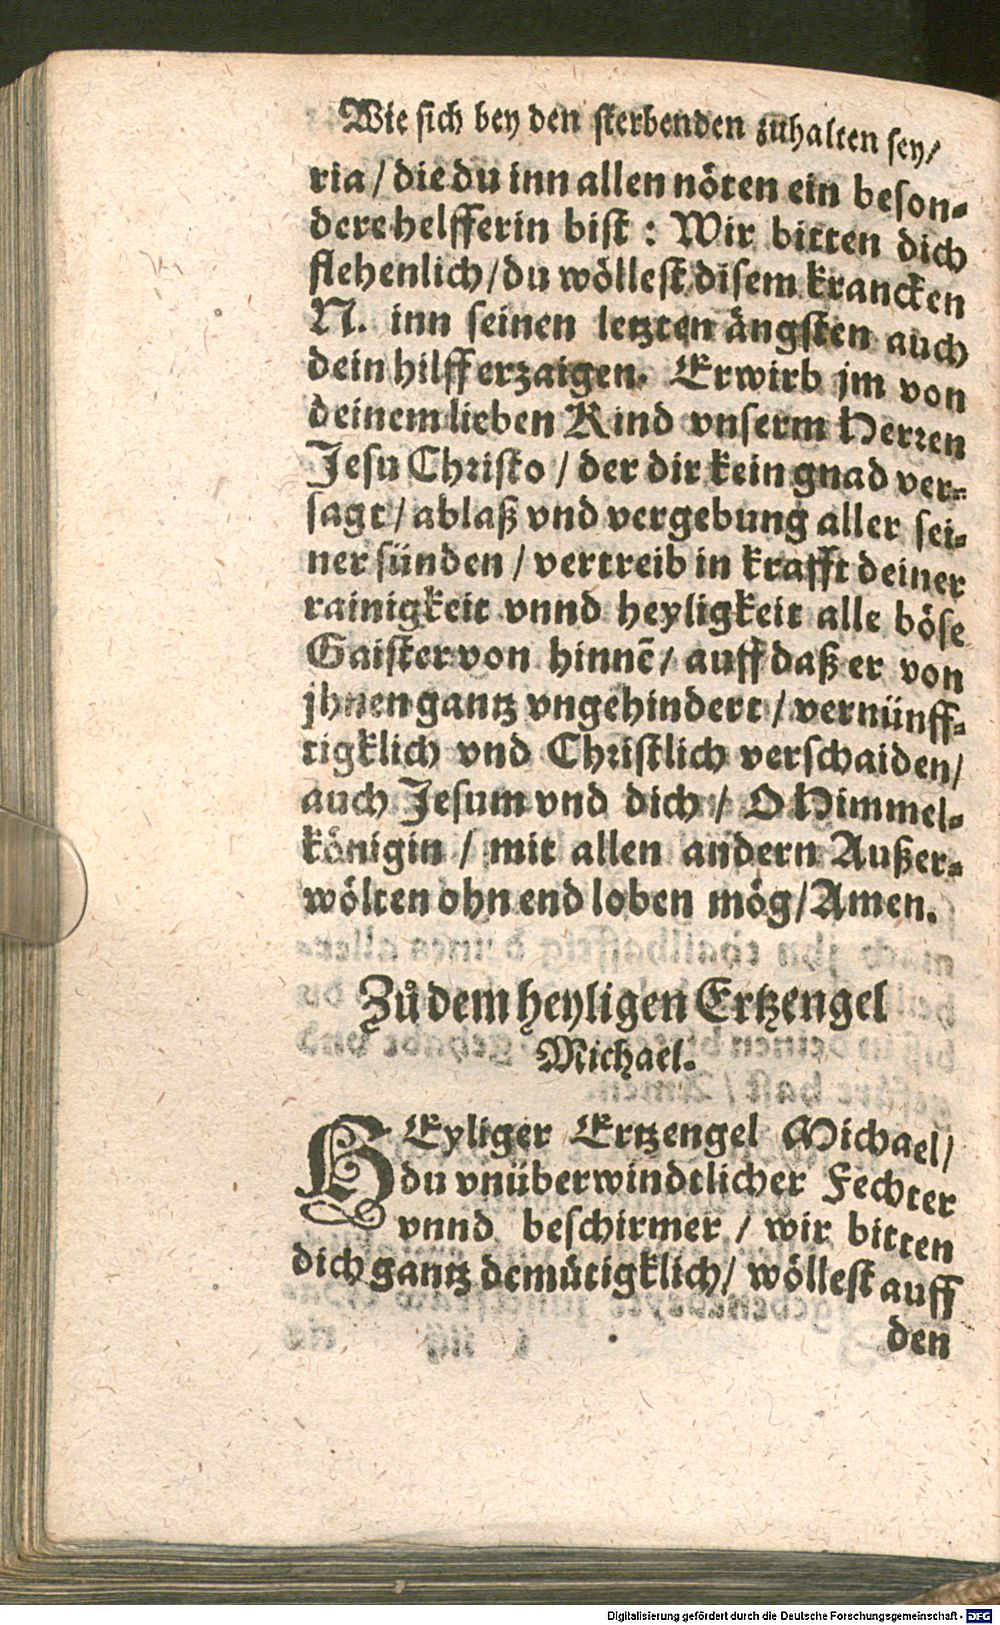 Wie sich bey den sterbenden zuhalten sey/
ria / die du inn allen nöten ein beson-
dere helfferin bist : Wir bitten dich
flehenlich/du wöllest disem krancken
N. inn seinen letzten ängsten auch
dein hilff erzaigen. Erwirb jm von
deinem lieben Kind vnserm Herren
Jesu Christo / der dir kein gnad ver-
sagt / ablaß vnd vergebung aller sei-
ner sünden / vertreib in krafft deiner
rainigkeit vnnd heyligkeit alle böse
Gaister von hinnē / auff daß er von
jhnen gantz vngehindert / vernünff-
tigklich vnd Christlich verschaiden/
auch Jesum vnd dich / O Himmel-
königin / mit allen andern Außer-
wölten ohn end loben mög/Amen.
Zů dem heyligen Ertzengel
Michael.
HEyliger Ertzengel Michael/
du vnüberwindtlicher Fechter
vnnd beschirmer / wir bitten
dich gantz demütigklich/ wöllest auff
den
Digitalisierung gefördert durch die Deutsche Forschungsgemeinschaft - DFG